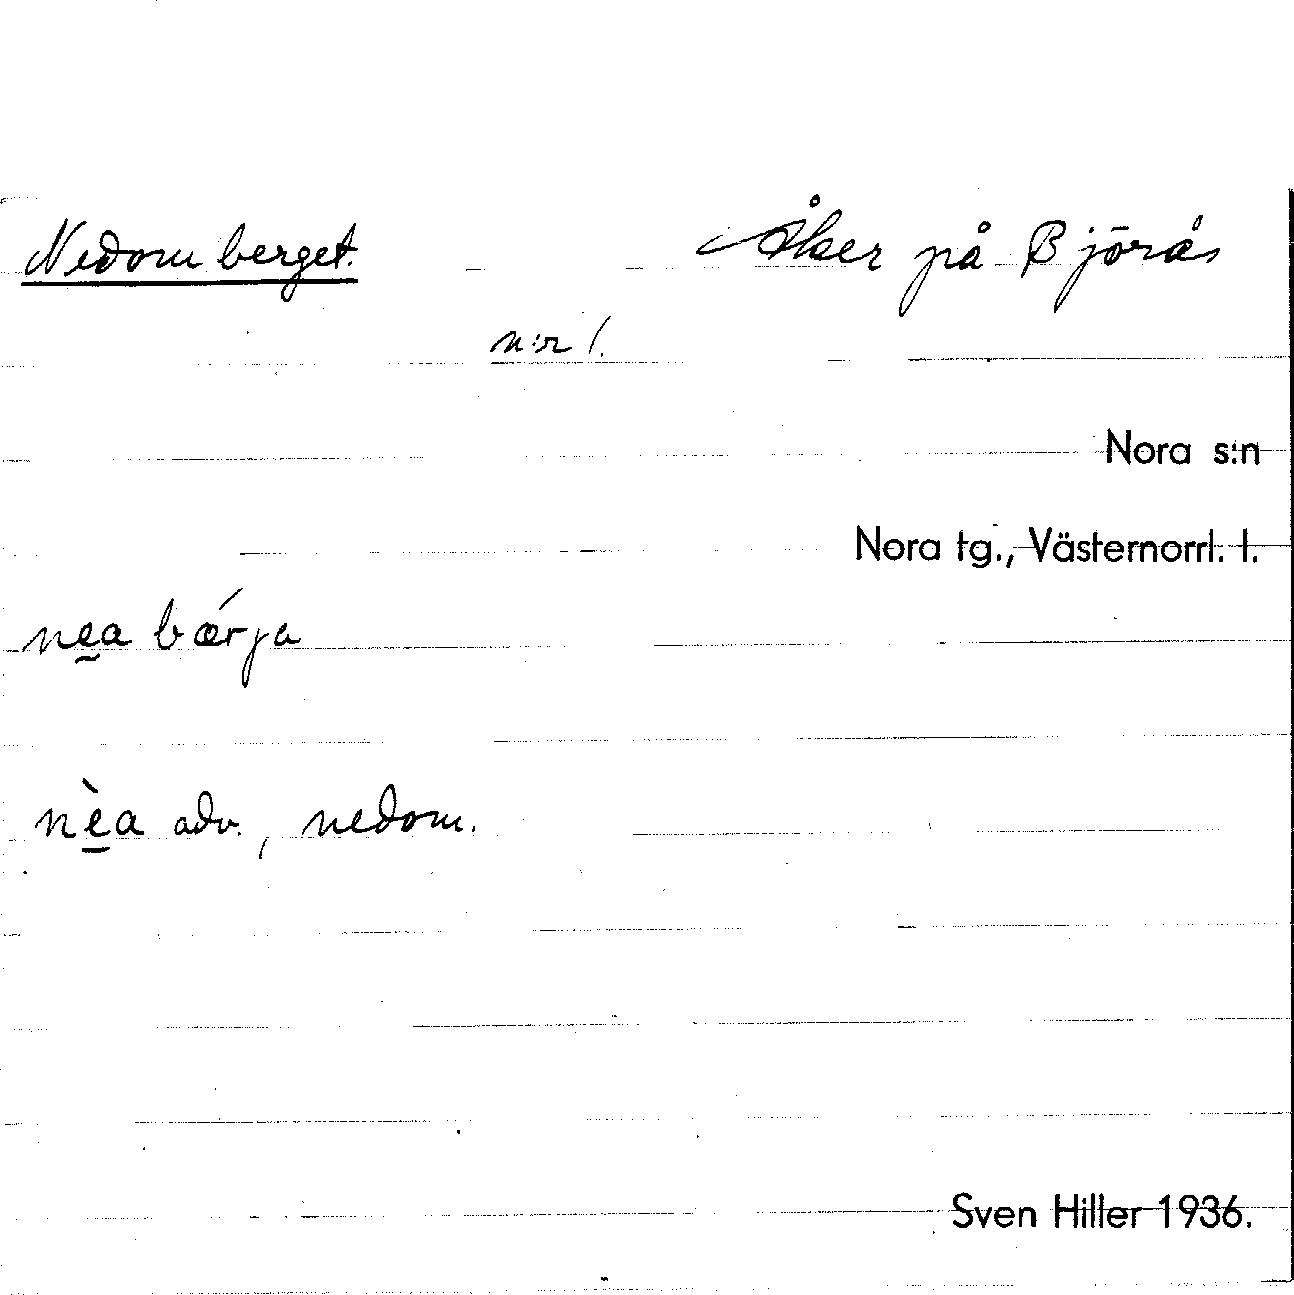 Nedom berget. Åker på Björås
n:r 1.
Nora s:n
Nora tg., Västernorrl. l.
nea bǽrja
nèa adv., nedom.
Sven Hiller 1936.